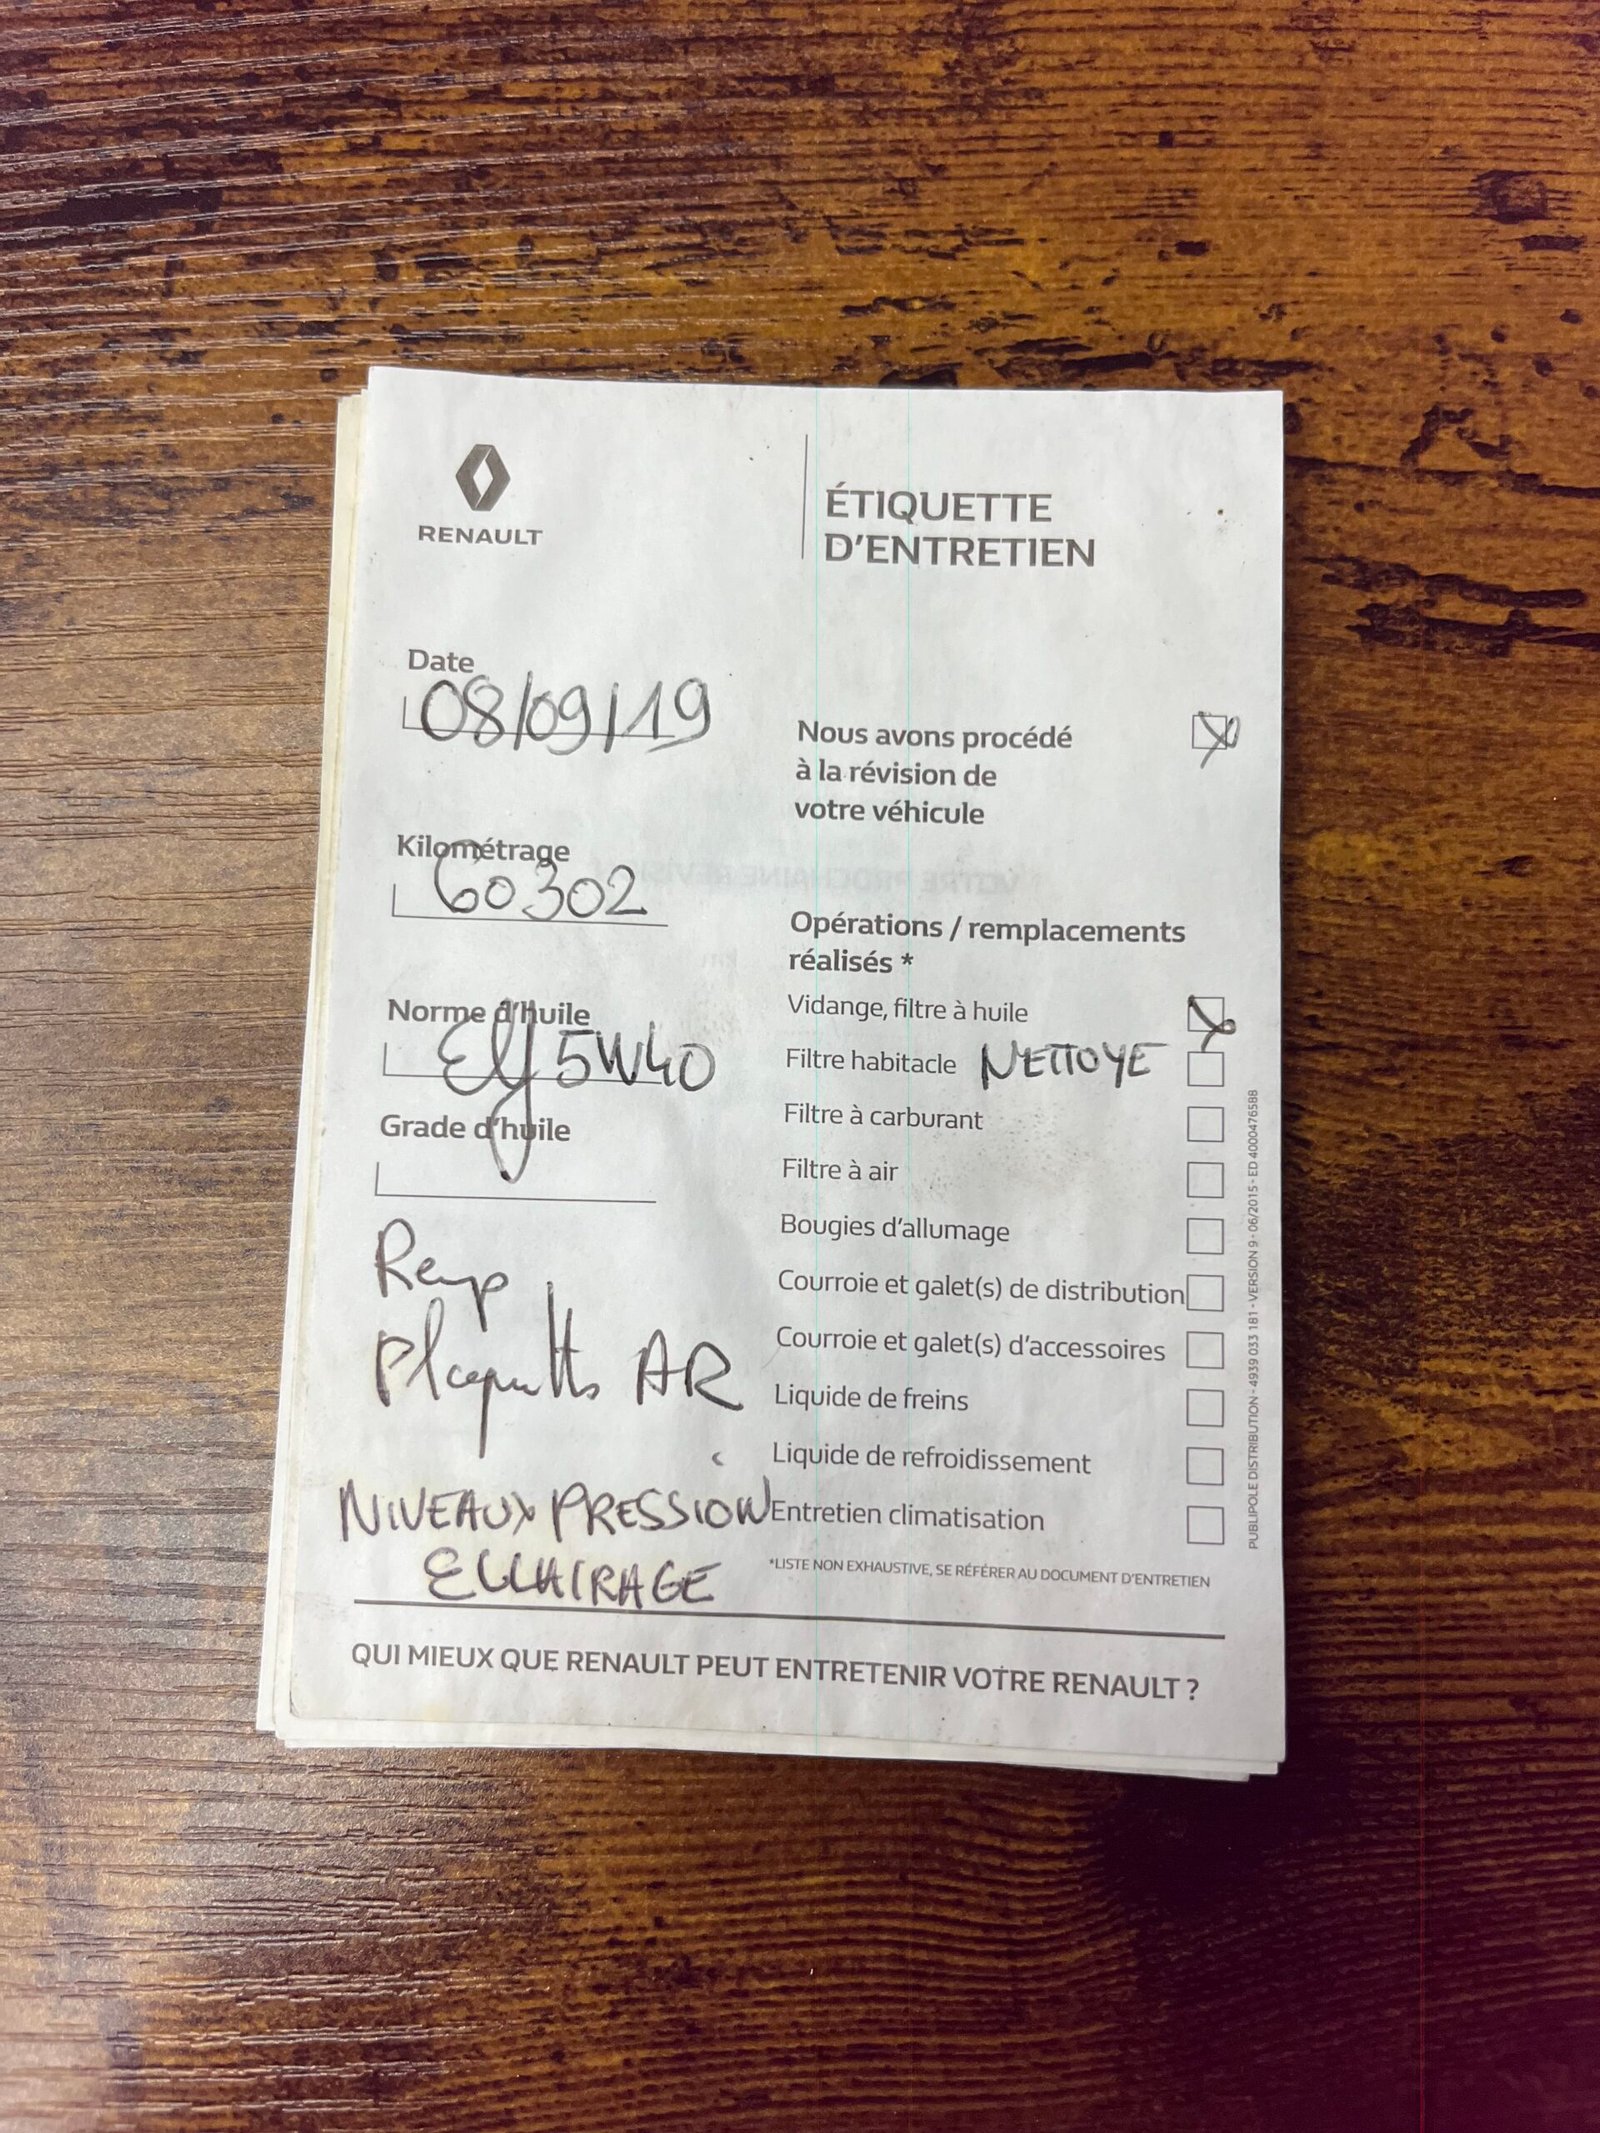 RENAULT
ÉTIQUETTE
D'ENTRETIEN
Date
08/09/19
Kilométrage
60302
Norme d'huile
Elf 5W40
Grade d'huile
Remp
Plaquetts AR
NIVEAUX PRESSION
ECLAIRAGE
Nous avons procédé
à la révision de
votre véhicule
Opérations / remplacements
réalisés *
Vidange, filtre à huile
Filtre habitacle NETTOYE
Filtre à carburant
Filtre à air
Bougies d'allumage
Courroie et galet(s) de distribution
Courroie et galet(s) d'accessoires
Liquide de freins
Liquide de refroidissement
Entretien climatisation
*LISTE NON EXHAUSTIVE, SE RÉFÉRER AU DOCUMENT D'ENTRETIEN
PUBLIPOLE DISTRIBUTION - 4939 033 181 - VERSION 9 - 06/2015 - ED 4000476588
QUI MIEUX QUE RENAULT PEUT ENTRETENIR VOTRE RENAULT ?